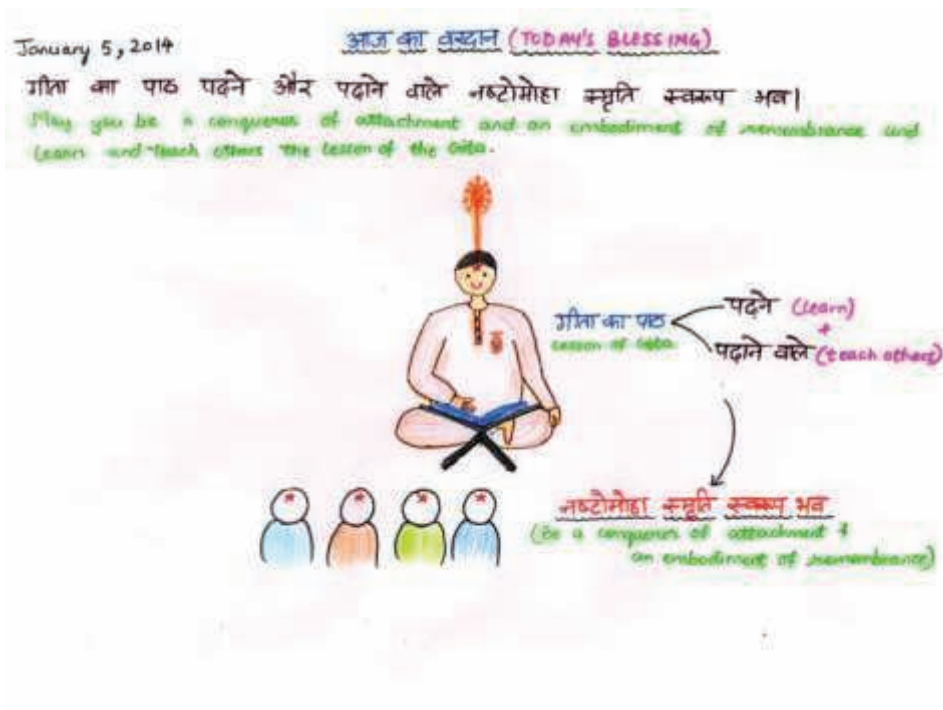 January 5, 2014
आज का वरदान (TODAY'S BLESSING)
गीता का पाठ पढ़ने और पढ़ाने वाले नष्टोमोहा स्मृति स्वरूप भव।
May you be a conqueror of attachment and an embodiment of remembrance and
learn and teach others the lesson of the Gita.
गीता का पाठ
Lesson of Gita
पढ़ने (learn)
+
पढ़ाने वाले (teach others)
नष्टोमोहा स्मृति स्वरूप भव
(Be a conqueror of attachment &
an embodiment of remembrance)